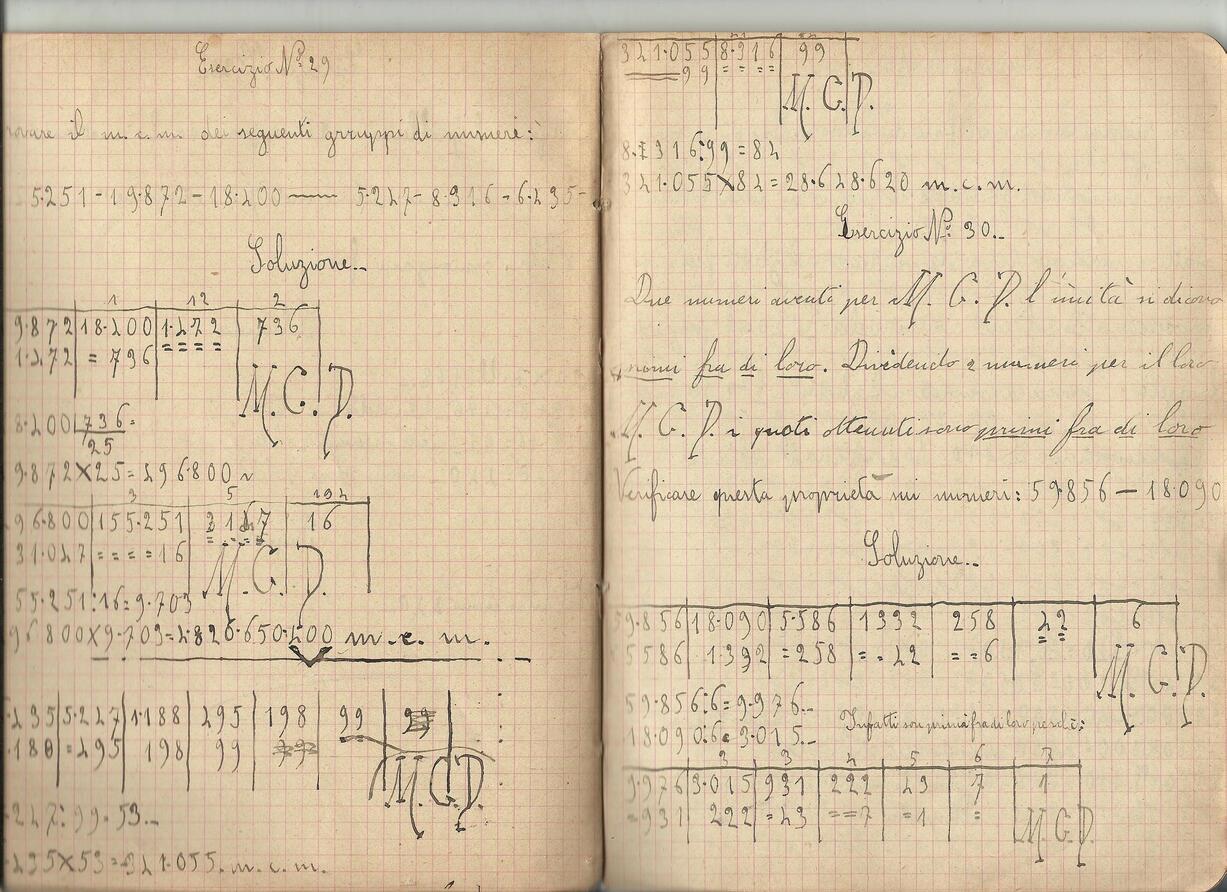 Esercizio Nº 29
ovare il m.c.m. dei seguenti gruppi di numeri:
5.251 - 19.872 - 18.400 — 5.247 - 8.316 - 6.435 -
Soluzione..
1 12 2
9.872 18.400 1.472 736
1.472 = 736 ====
M. C. D.
8.400 736=
25
9.872 × 25 = 496.800
3 5 194
96.800 155.251 16
31.047 ====16
M. C. D.
55.251:16=9.703
96 800×9.703=4.820.650.400 m. c. m.
.435 5.247 1.188 495 198 99
.188 =495 198 99
M. C. D.
.247:99=53..
.435×53=341.055. m. c. m.
341.055 8.316 99
99 ====
M. C. D.
8.316:99=84
341.055×84=28.648.620 m. c. m.
Esercizio Nº 30..
Due numeri aventi per M. C. D. l'unità si dicono
fra di loro. Dividendo 2 numeri per il loro
M. C. D. i quoti ottenuti sono primi fra di loro
Verificare questa proprietà nei numeri: 59.856 — 18.090
Soluzione..
9.856 18.090 5.586 1332 258 42 6
5586 1.332 =258 =-42 ==6 ==
M. C. D.
59.856:6=9.976..
18.090:6=3.015.. Infatti son primi fra di loro perchè:
3 3 4 5 6 7
9.976 3.015 931 222 43 7 1
=931 222 =43 ==7 =1 =
M. C. D.